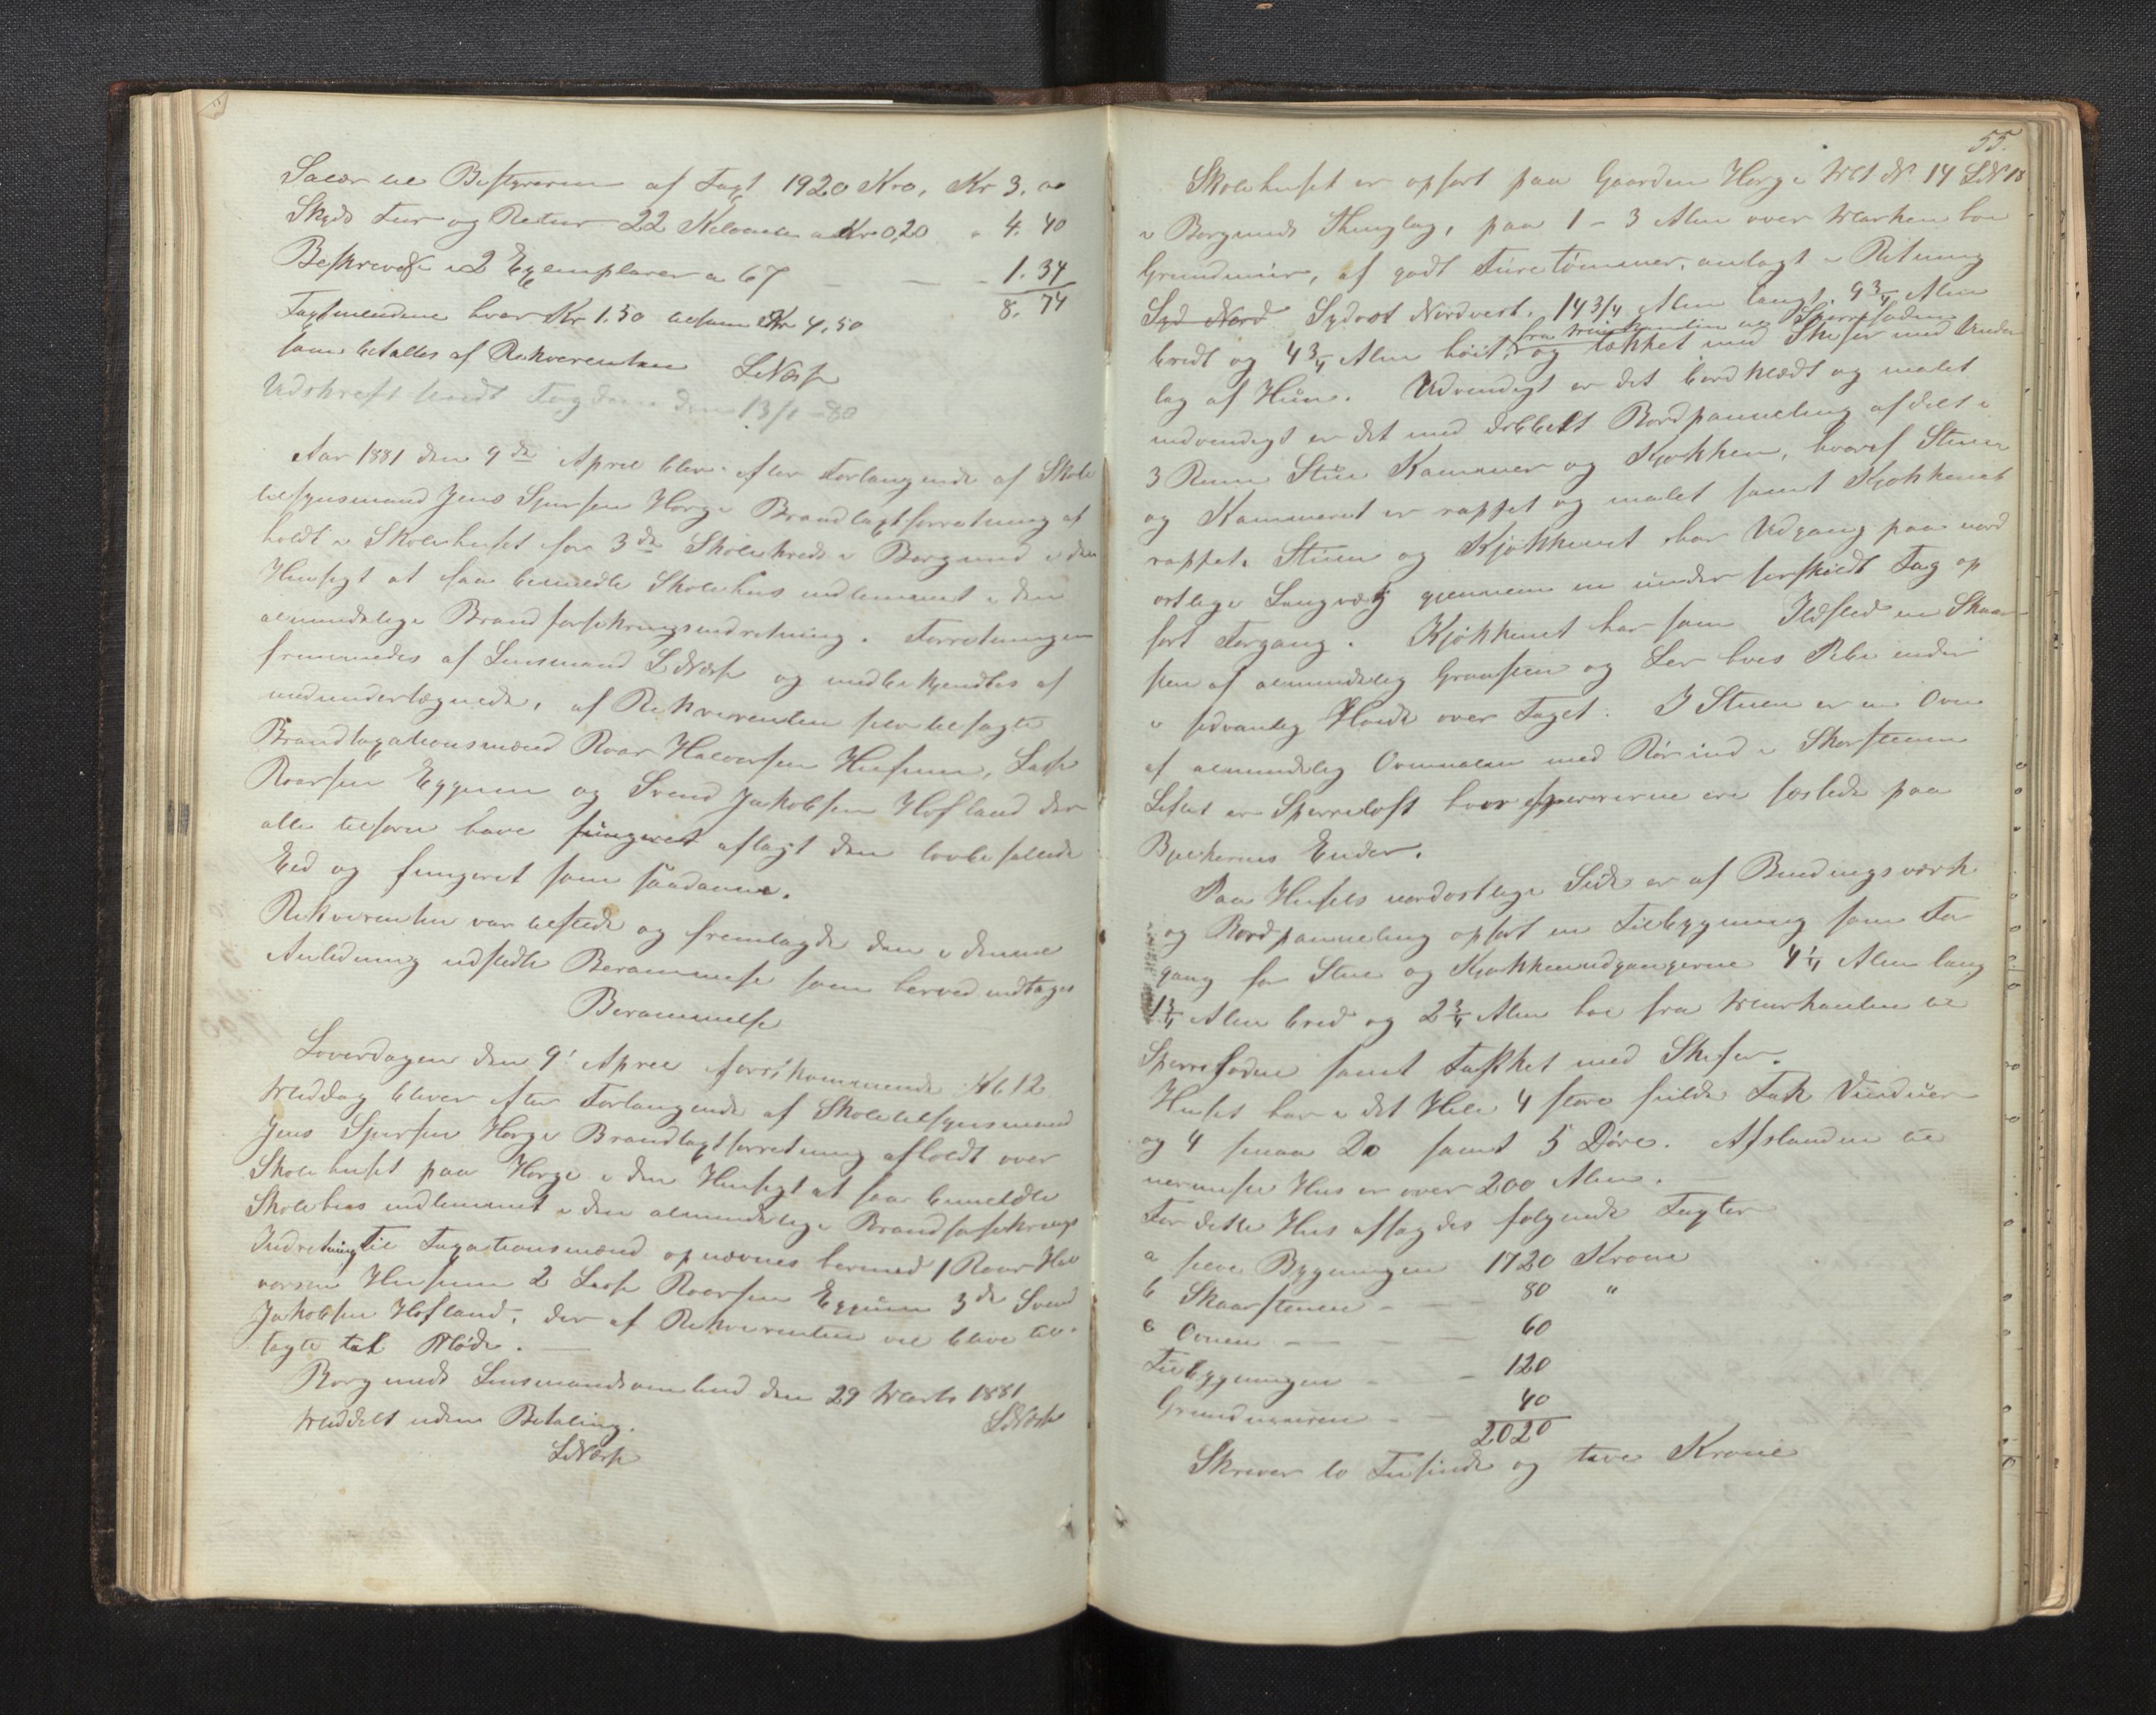 Salær til Bestyreren af Taxt 1920 Kro, Kr 3. 00
Skyds Tur og Retur 22 Kilometer a Kr 0,20 " 4. 40
Beskrivelse i 2 Exemplarer a 67 - - - 1. 34
8. 74
Taxtmændene hver Kr 1.50 tilsam Kr 4,50
som betalles af Rekverenten LNæsse
Udskreft sendt den 13/1-80
Aar 1881 den 9de April blev efter Forlangende af Skole
tilsynsmand Jens Sjursen Horge Brandtaxtforretning af
holdt i Skolehuset for 3de Skolekreds i Borgund i den
Hensigt at faa bemeldte Skolehus indlemmet i den
almindelige Brandforsikringsindretning. Forretningen
fremmedes af Lensmand L Næsse og medbekjendtes af
medundertegnede, af Rekverenten selv tilsagte
Brandtaxationsmænd Roar Halvorsen Husum, Lasse
Roarsen Eggum og Svend Jakobsen Hofland der
alle tilforn have fungeret aflagt den lovbefallede
Eed og fungeret som saadanne.
Rekverenten var tilstede og fremlagde den i denne
Anledning udstedte Berammelse som herved indtages
Berammelse
Loverdagen den 9' April førstkommende Kl. 12
Middag bliver efter Forlangende af Skoletilsynsmand
Jens Sjursen Horge Brandtaxtforretning afholdt over
Skolehuset paa Horge i den Hensigt at faa bemeldte
Skolehus indlemmet i den almindelige Brandforsikrings
Indretning Til Taxationsmænd opnævnes hermed 1 Roar Hal
vorsen Husum 2 Lasse Roarsen Eggum 3de Svend
Jakobsen Hofland, der af Rekverenten vil blive til-
sagte tel Møde. -
Borgunds Lensmandsombud den 29 Marts 1881
LNæsse
Meddelt uden Betaling.
LNæsse
55.
Skolehuset er opført paa Gaarden Horge Mt No 14 LN 18
i Borgunds Thinglag, paa 1 - 3 Alen over Marken høi
Grundmur, af godt Furetømmer, anlagt i Retning
Syd Nord Sydøst Nordvest. 14 3/4 Alen langt, 9 3/4 Alen
fra Murkanten til Sperrefoden
bredt og 4 3/4 Alen høit, og tækket med Skifer med Under
lag af Hun. Udvendigt er det bordklædt og malet
indvendigt er det med dobbelt Bordpanneling afdelt i
3 Rum Stue Kammer og Kjøkken, hvoraf Stuen
og Kammeret er rappet og malet samt Kjøkkenet
rappet. Stuen og Kjøkkenet har Udgang paa nord
østlige Langvæg gjennem en under særskildt Tag op
ført Forgang. Kjøkkenet har som Ildsted en Skaar
sten af almindelig Graasten og Ler hvis Pibe ender
i sedvanlig Høide over Taget. I Stuen er en Ovn
af almindelig Ovnmalm med Rør ind i Skorstenen
Loftet er Sperreloft hvor sperrerne ere fæstede paa
Bjelkernes Ender.
Paa Husets nordøstlige Side er af Bindingsværk
og Bordpanneling opført en Tilbygning som For
gang for Stue og Kjøkkenudgangerne 4 1/4 Alen lang
1 3/4 Alen bred og 2 3/4 Alen høi fra Murkanten til
Sperrefoden samt Tækket med Skifer.
Huset har i det Hele 4 store fulde Fak Vinduer
og 4 smaa Do samt 5 Døre. Afstanden til
nermeste Hus er over 200 Alen.
For dette Hus aflagdes følgende Taxter
a selve Bygningen 1720 Krone
b Skaarstenen - - - 80 "
c Ovnen - - - 60
Tilbygningen - - 120
Grundmuren - - 40
2020
Skriver to Tusinde og tyve Krone